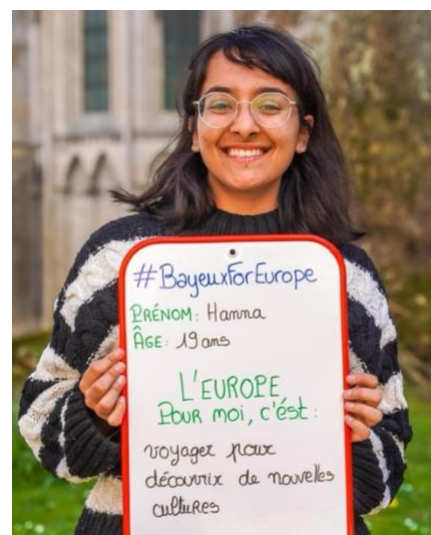 #BayeuxForEurope
PRÉNOM: Hanna
ÂGE: 19 ans
L'EUROPE
POUR MOI, C'ÉST:
voyager pour
découvrir de nouvelles
cultures